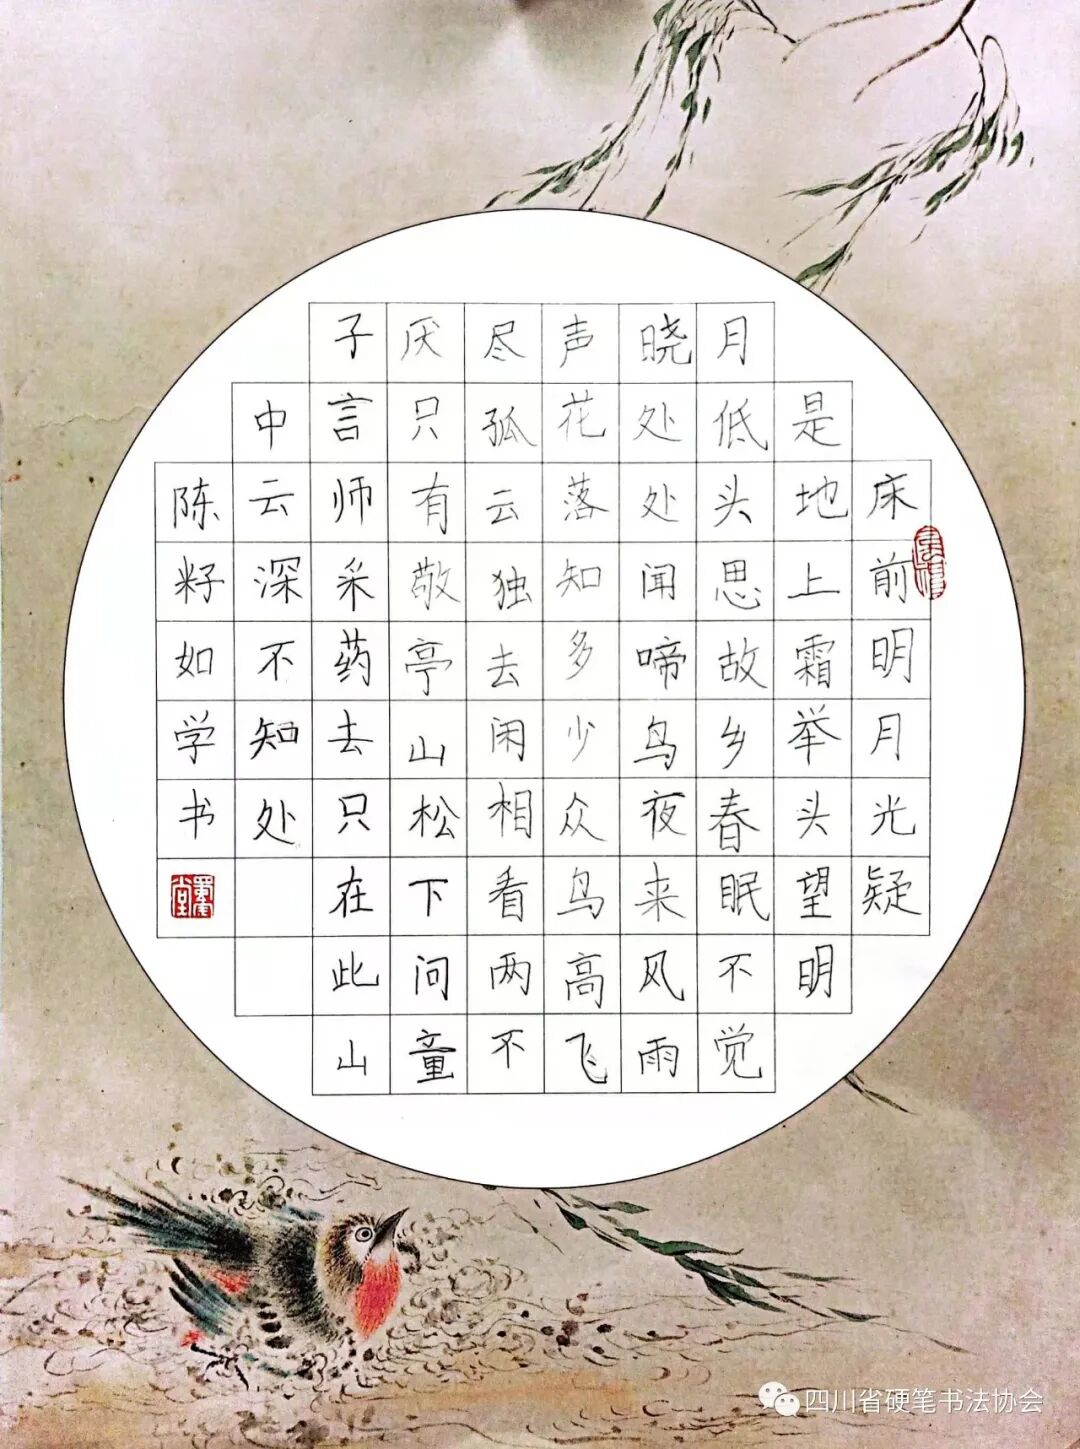 床前明月光疑
是地上霜举头望明
月低头思故乡春眠不觉
晓处处闻啼鸟夜来风雨
声花落知多少众鸟高飞
尽孤云独去闲相看两不
厌只有敬亭山松下问童
子言师采药去只在此山
中云深不知处
陈籽如学书
四川省硬笔书法协会